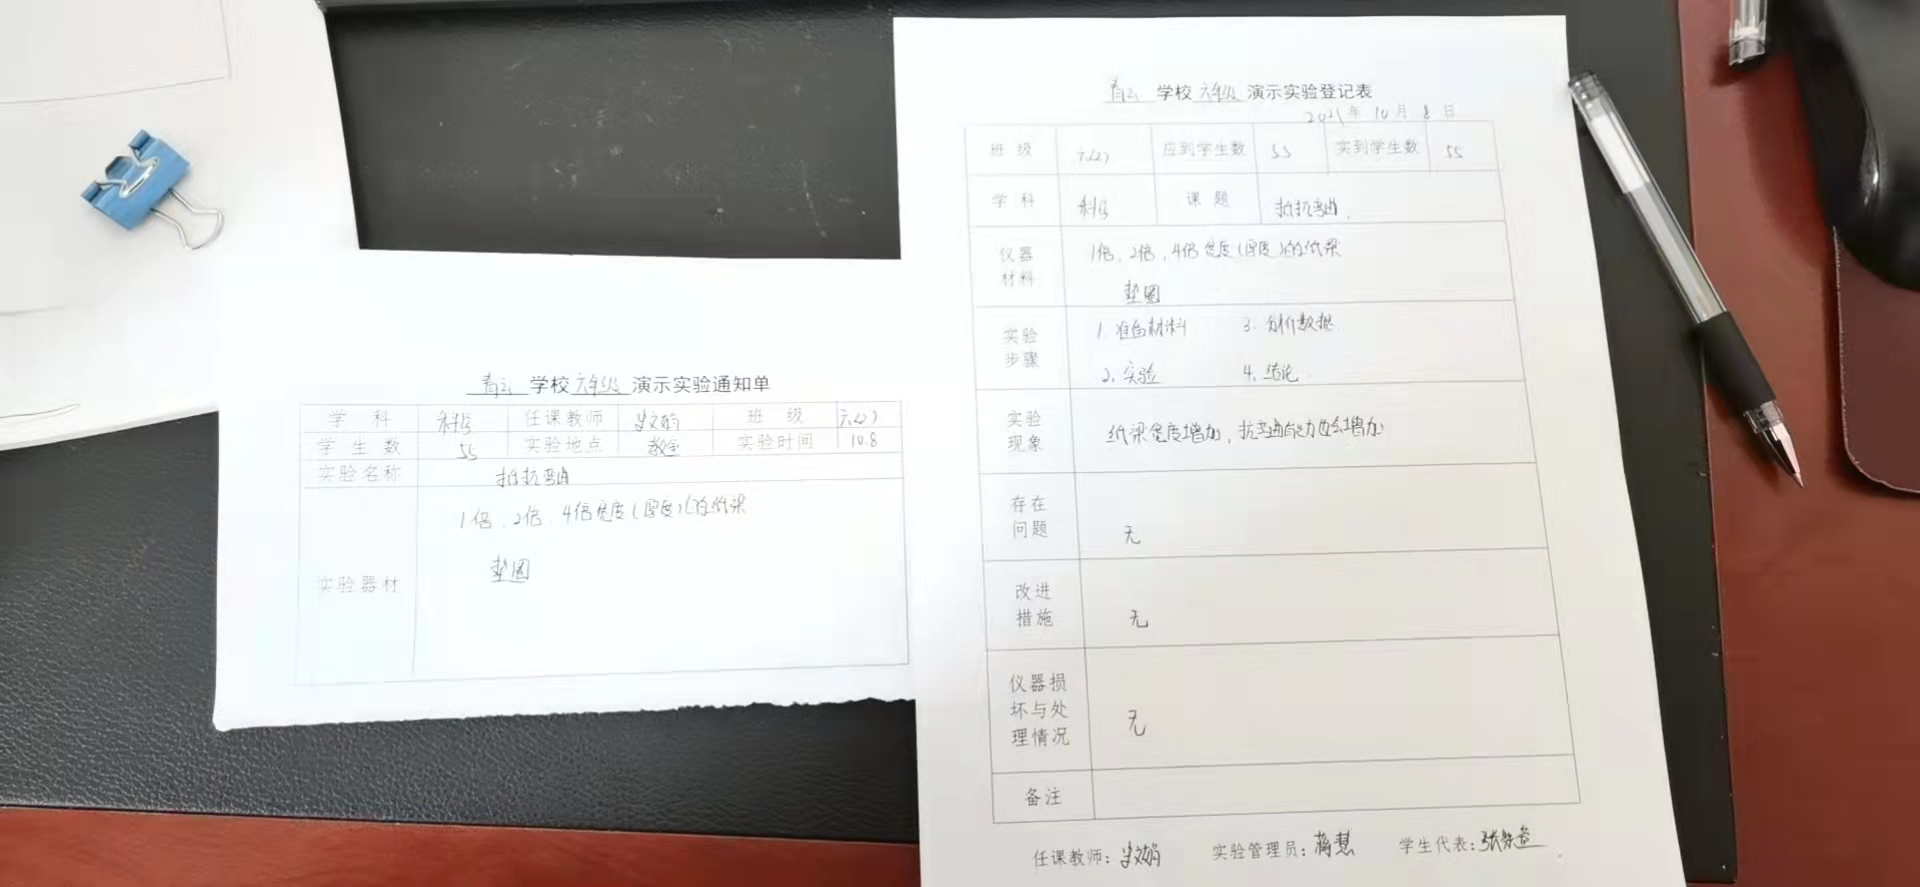 青云 学校 六年级 演示实验通知单
学 科 科学 任课教师 班 级 六(2)
学 生 数 55 实验地点 教室 实验时间 10.8
实验名称 抵抗弯曲
实验器材 1倍、2倍、4倍宽度(厚度)的纸梁
垫圈
青云 学校 六年级 演示实验登记表
2021年 10月 8日
班 级 六(2) 应到学生数 55 实到学生数 55
学 科 科学 课 题 抵抗弯曲.
仪器材料 1倍、2倍、4倍宽度(厚度)的纸梁
垫圈
实验步骤 1. 准备材料 3. 分析数据
2. 实验 4. 结论
实验现象 纸梁宽度增加,抗弯曲能力也会增加
存在问题 无
改进措施 无
仪器损坏与处理情况 无
备注
任课教师: 实验管理员: 学生代表: